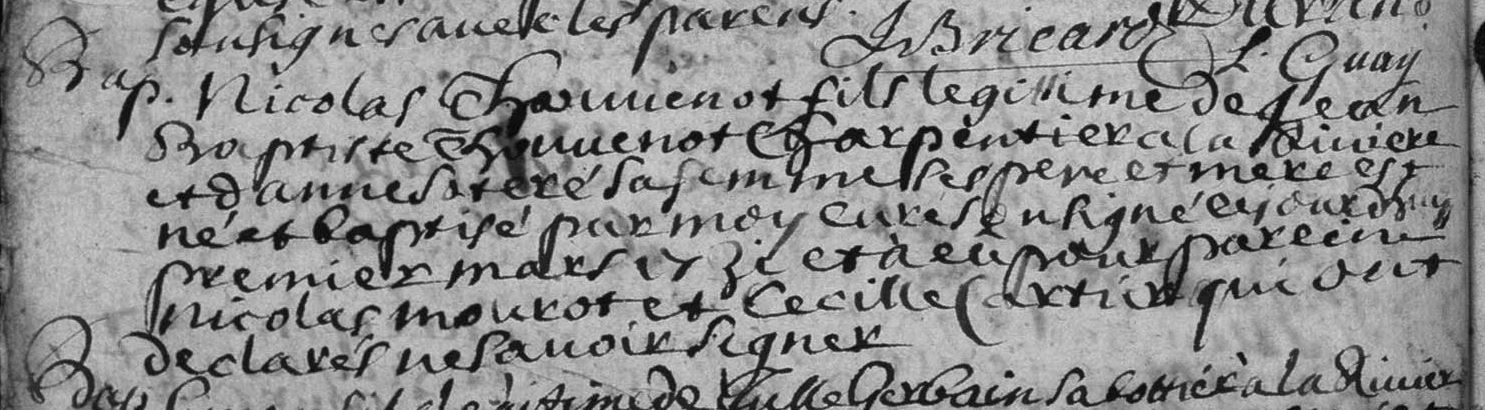 sousignes avec les parens.
JBricard
Bap. L. Guay
Nicolas Thouvenot fils legitime de Jean
Baptiste Thouvenot Charpentier a la Riviere
et d anne sa femme ses pere et mere est
né et baptisé par moy curé sousigné cejourdhuy
premier mars 1731 et à eu pour pareine
Nicolas mourot et Cecille Cartier qui ont
declarés ne savoir signer
Bap fils legitime de Gerbain sabottier à la Rivier